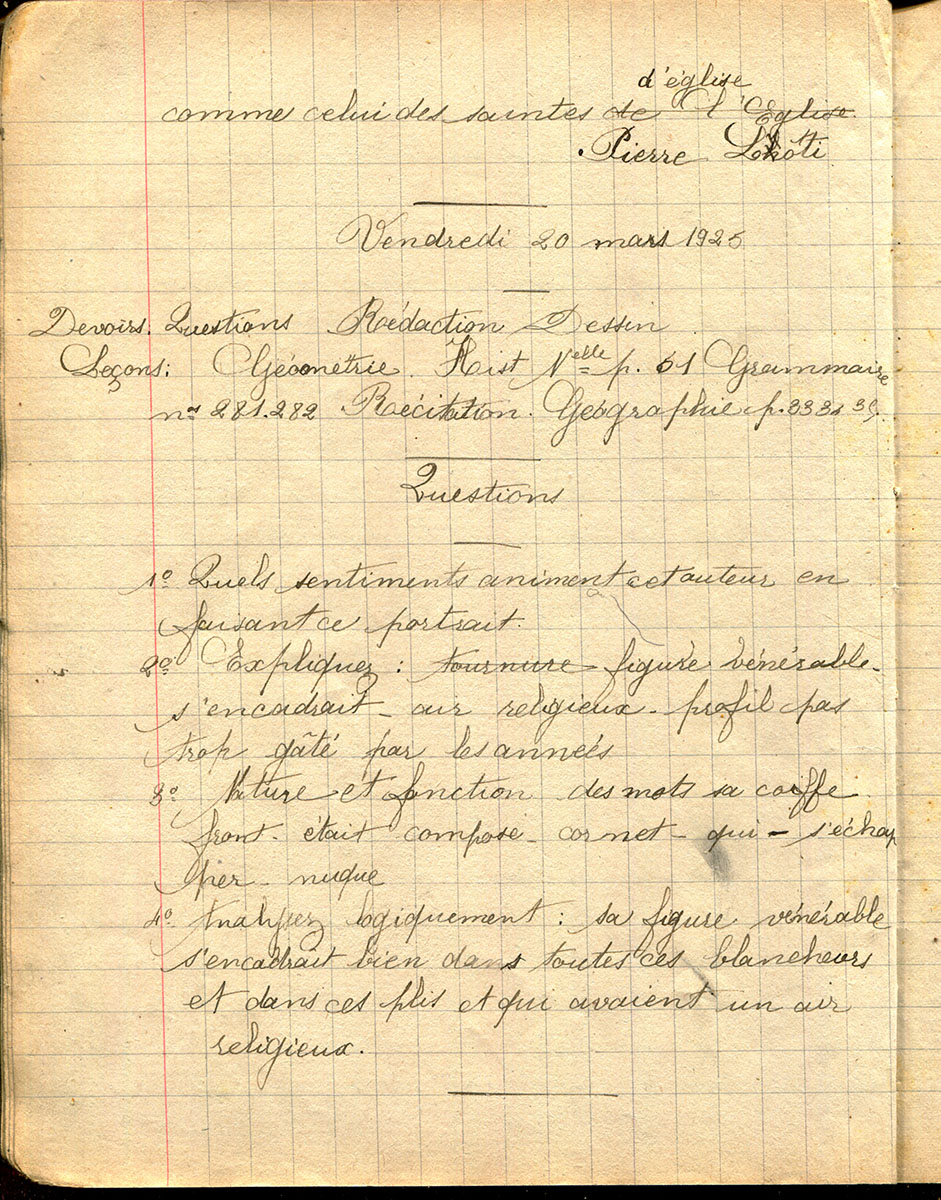 d'église
comme celui des saintes de l'Eglise
Pierre Loti
Vendredi 20 mars 1925
Devoirs. Questions Rédaction Dessin
Leçons: Géométrie. Hist Nelle p. 61 Grammaire
nos 281.282 Récitation. Géographie p. 33
Questions
1º Quels sentiments animent cet auteur en
faisant ce portrait.
2º Expliquez : tournure figure vénérable -
s'encadrait - air religieux - profil pas
trop gâté par les années
3º Nature et fonction des mots sa coiffe
front - était compose - cornet - qui - s'échap
per - nuque
4º Analysez logiquement : sa figure vénérable
s'encadrait bien dans toutes ces blancheurs
et dans ces plis et qui avaient un air
religieux.